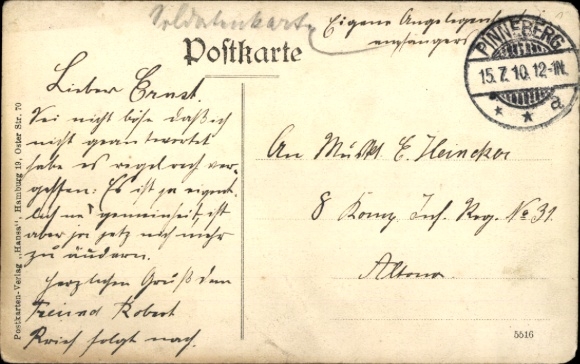 Soldatenkarte
Eigene Angelegenheit des
empfängers
Postkarte
PINNEBERG
15.7.10.12-1N.
* * a
Lieber Ernst.
Sei nicht böse daß ich
nicht geantwortet
habe es regelrech ver-
gessen: Es ist ja eigent-
lich ne gemeinheit ist
aber jetz nich mehr
zu ändern.
Herzlichen Gruß dein
Freund Robert
Brief folgt nach.
An Musk. E. Heincker
8 Komp. Inf. Reg. No 31.
Altona.
Postkarten-Verlag „Hansa", Hamburg 19, Oster Str. 70
5516